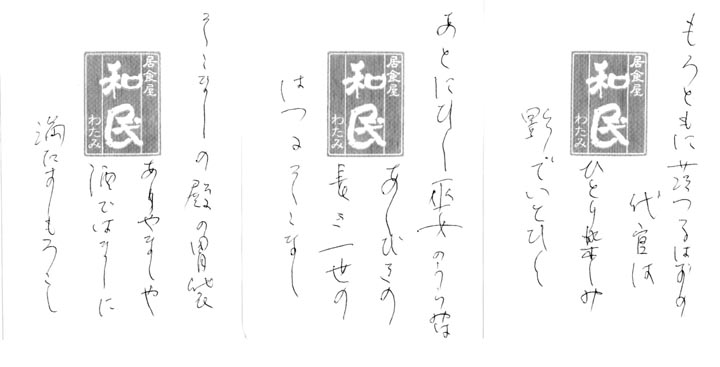 もろともに落つるはずの
代官は
ひとり
影でいとひく
居食屋
和民
わたみ
あとにひく巫女のうら
あしびきの
長き一世の
はつるそこなし
居食屋
和民
わたみ
そこなしの殿の胃袋
ありやなしや
酒ではなしに
満たすもろこし
居食屋
和民
わたみ